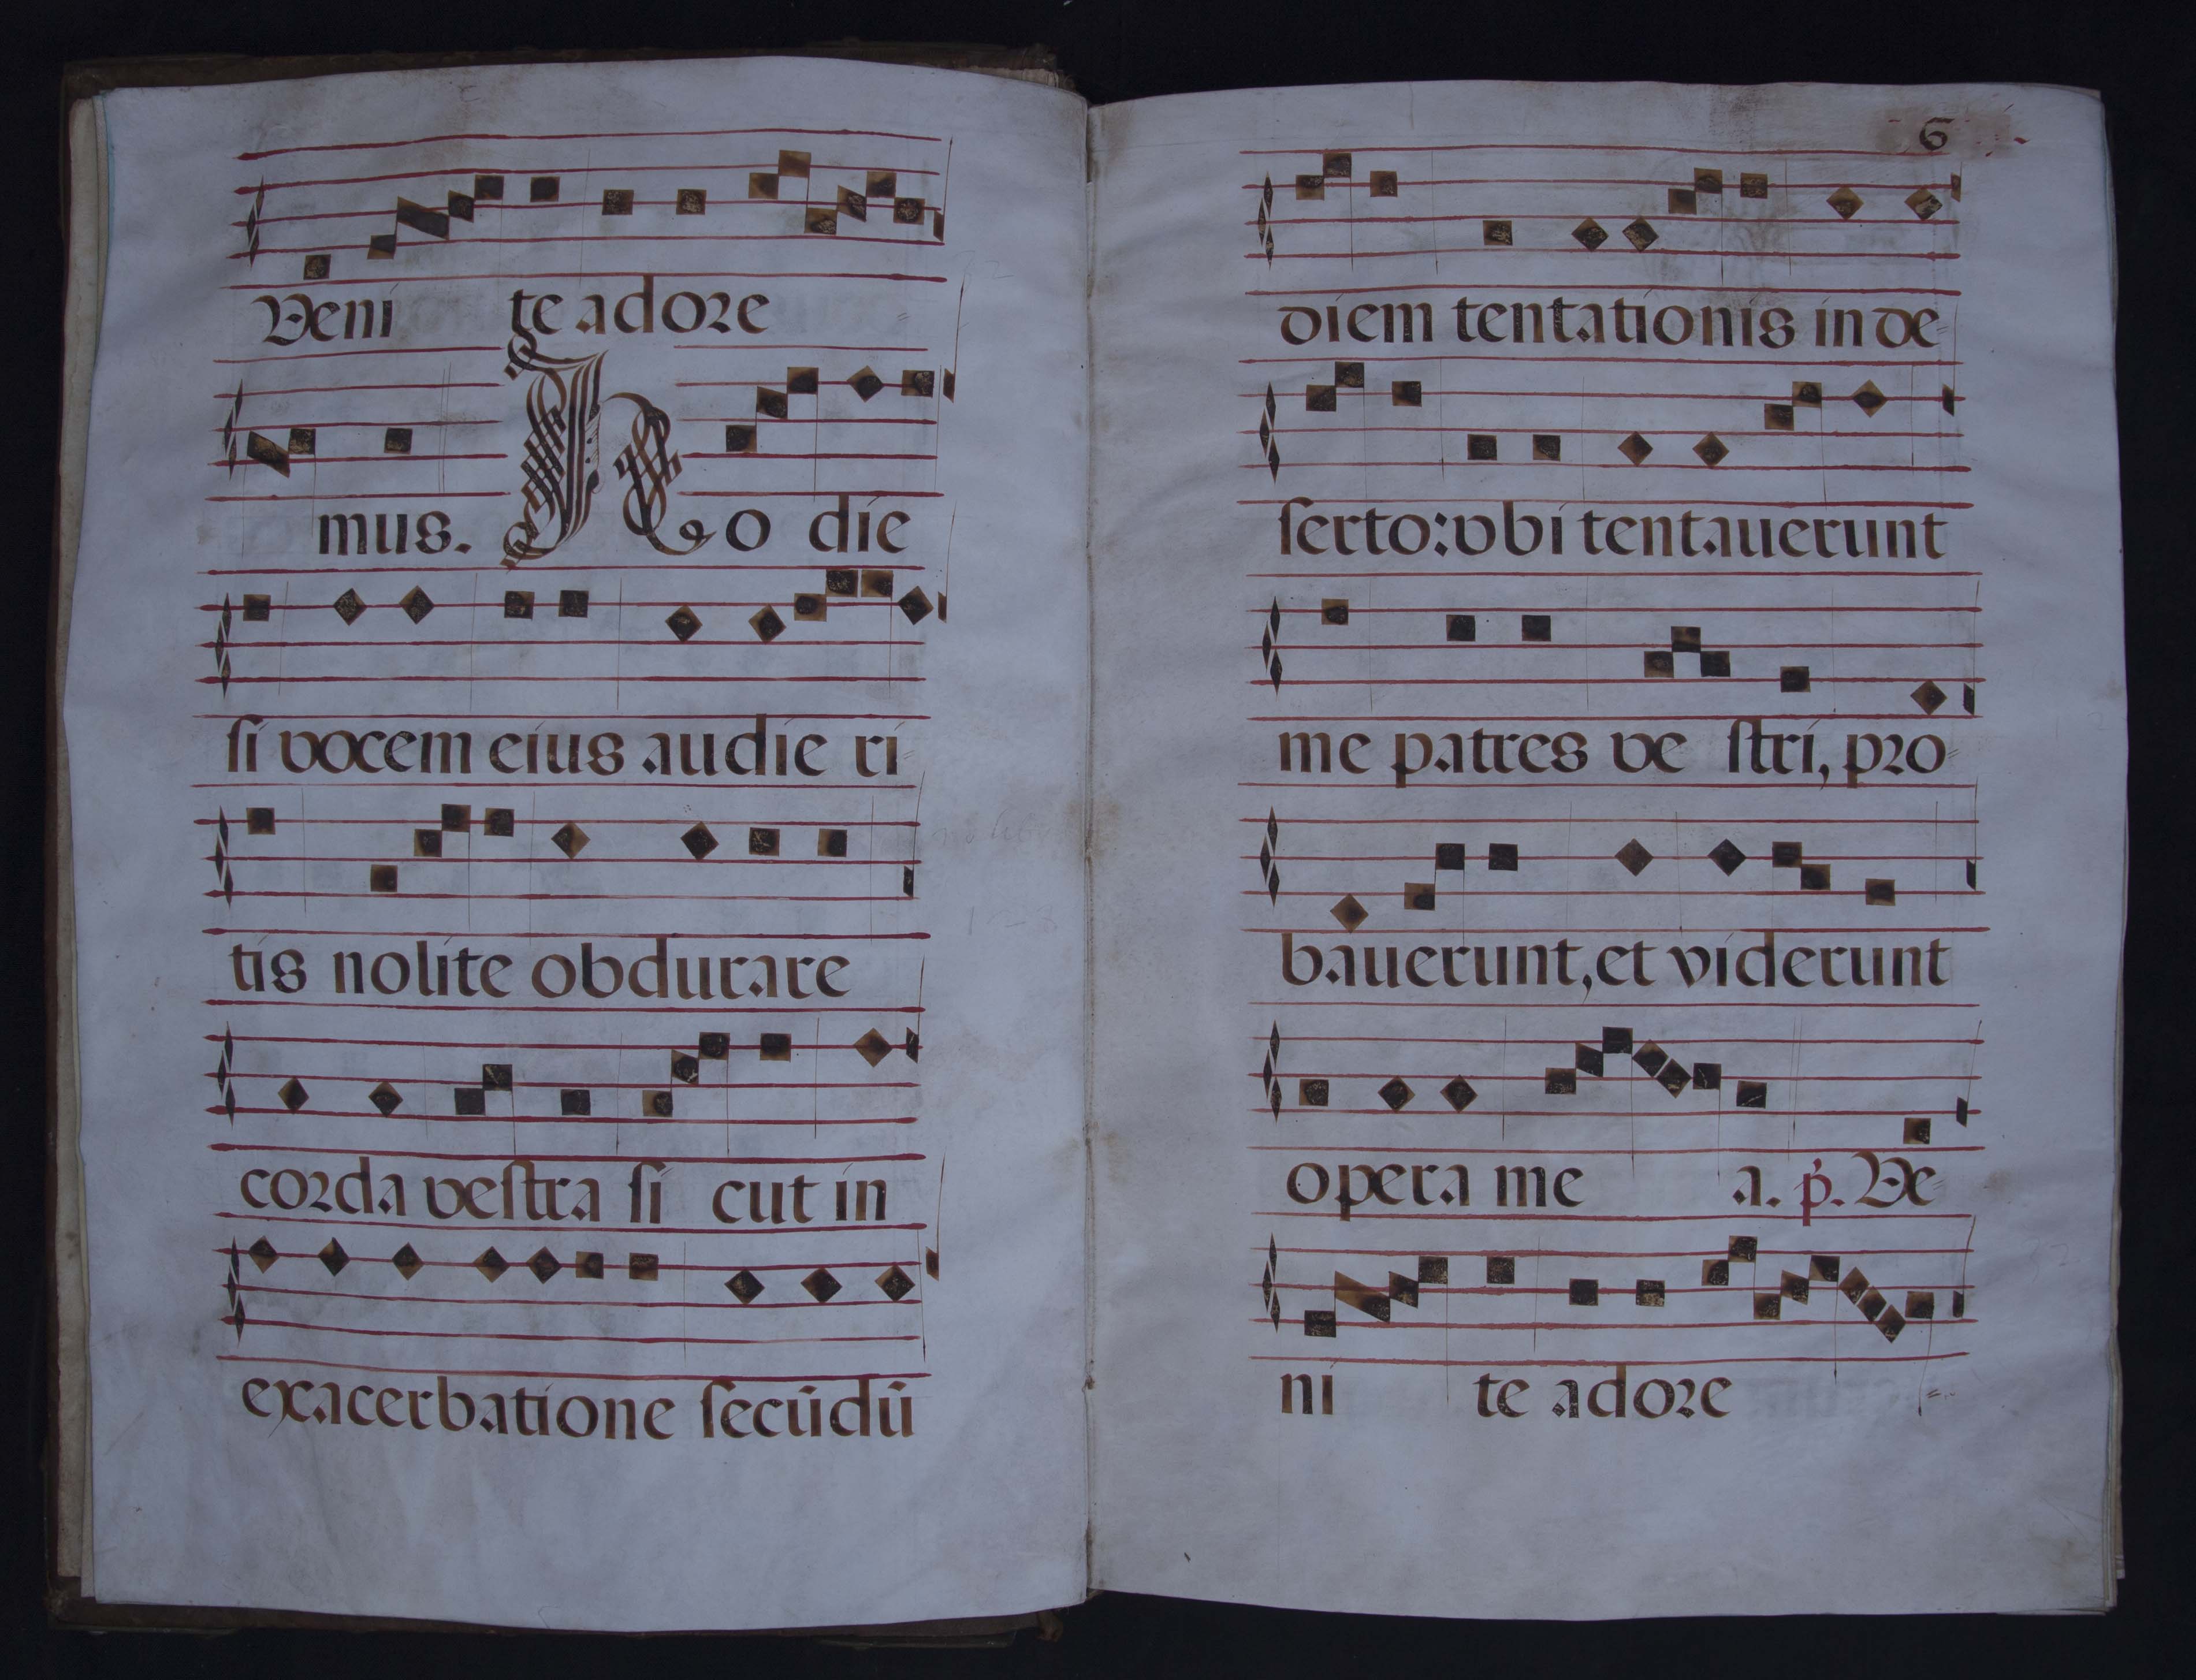 Veni te adore
mus. Ho die
si vocem eius audie ri
tis nolite obdurare
corda vestra si cut in
exacerbatione secūdū
6
diem tentationis in de
serto: vbi tentauerunt
me patres ve stri, pro
bauerunt, et viderunt
opera me a. p̄. Ve
ni te adore